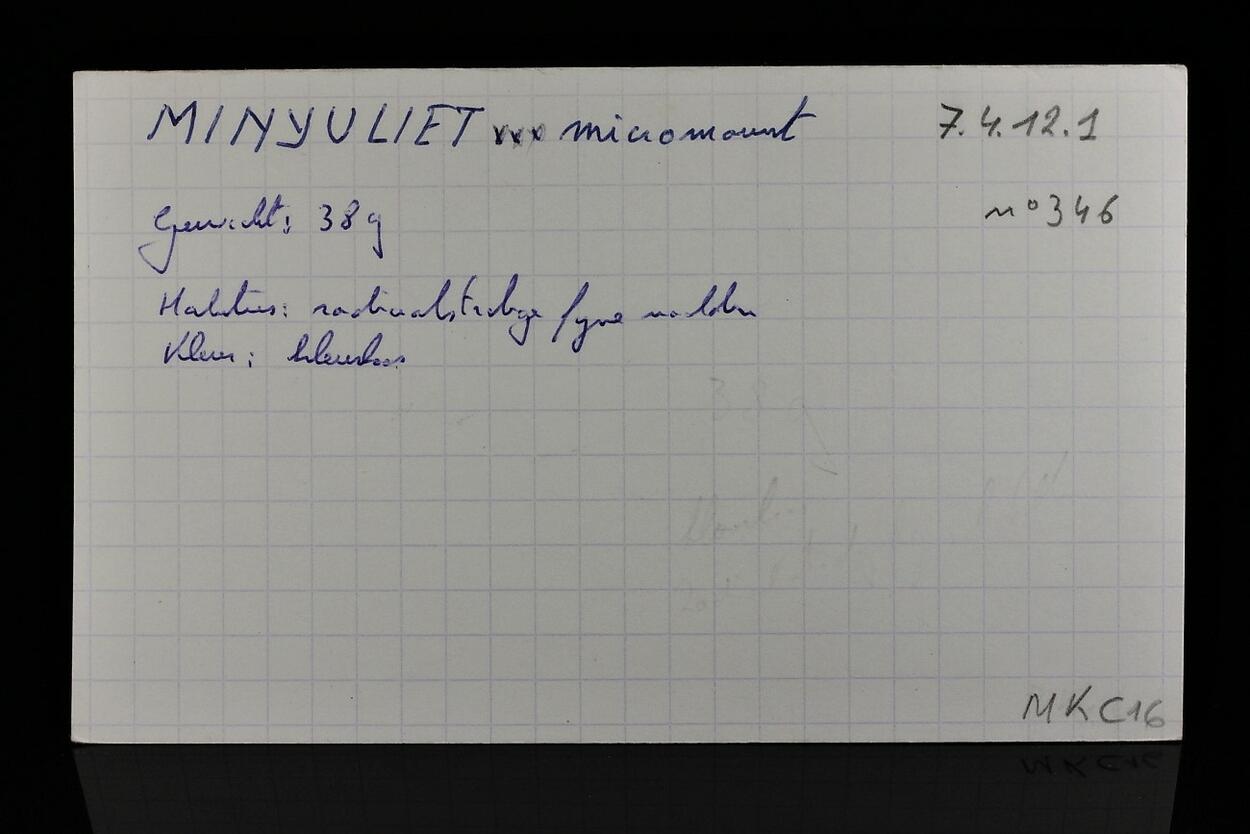 MINYULIET xxx micromount 7.4.12.1
Gewicht: 38g n° 346
Habitus: radiaalstralige fyne naalden
Kleur: kleurloos
38g
MKC16